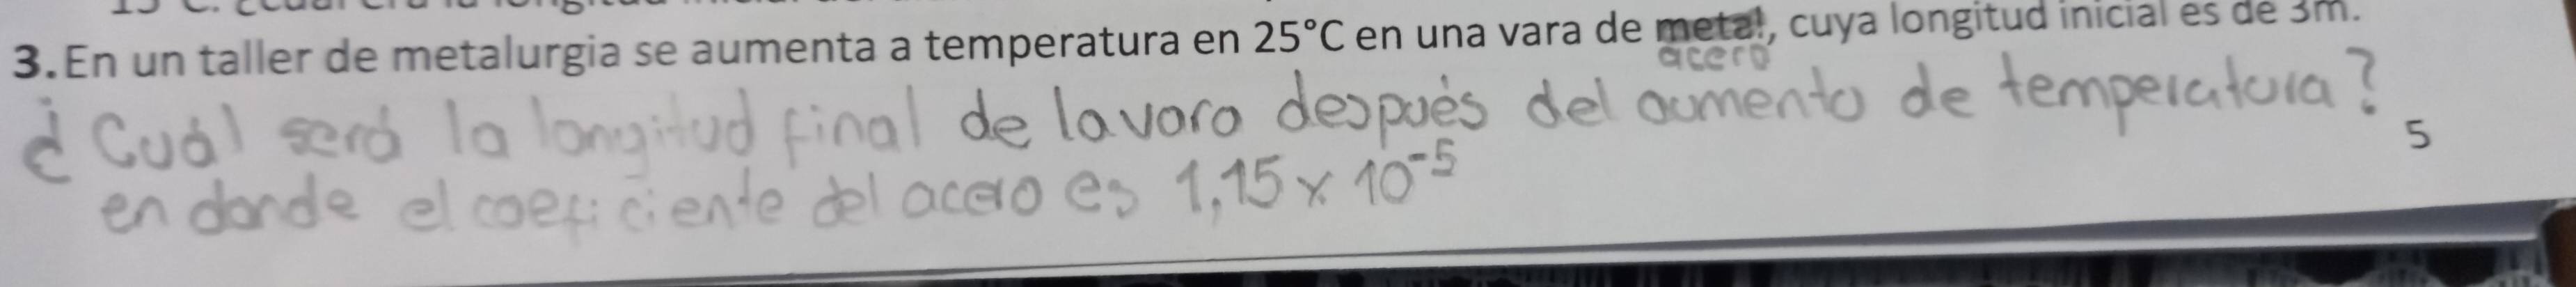 3. En un taller de metalurgia se aumenta a temperatura en 25°C en una vara de metal, cuya longitud inicial es de 3m.
acero
¿Cuál será la longitud final de la vara después del aumento de temperatura?
5
en donde el coeficiente del acero es 1,15 x 10⁻⁵